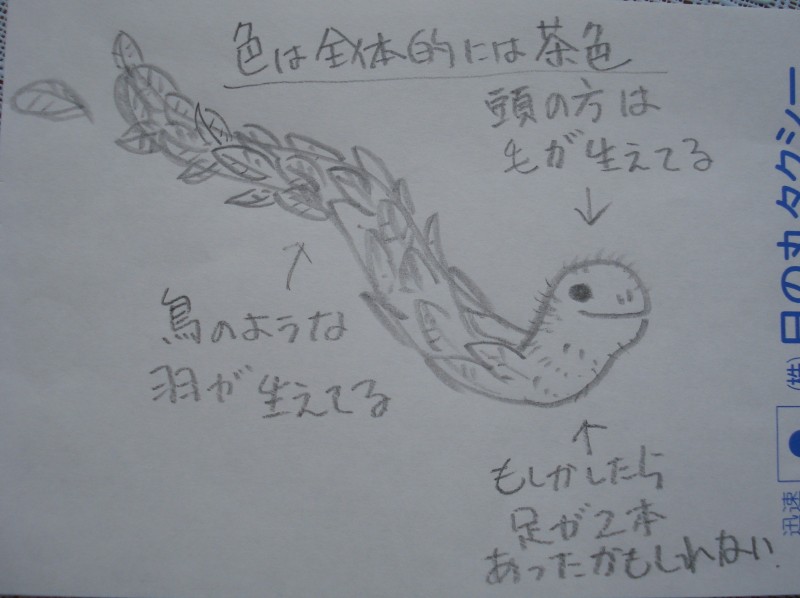 色は全体的には茶色
頭の方は
毛が生えてる
鳥のような
羽が生えてる
もしかしたら
足が2本
あったかもしれない
迅速 (株)日の丸タクシー